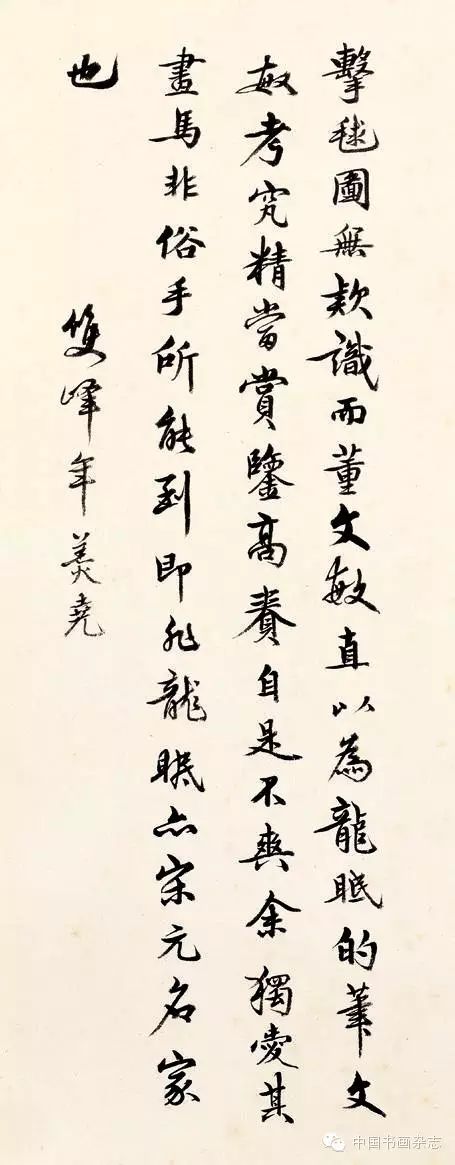 擊毬圖無款識而董文敏直以為龍眠的筆文
敏考究精當賞鑒高賽自是不爽余獨愛其
畫馬非俗手所能到即非龍眠亦宋元名家
也
雙峰年羹堯
中国书画杂志